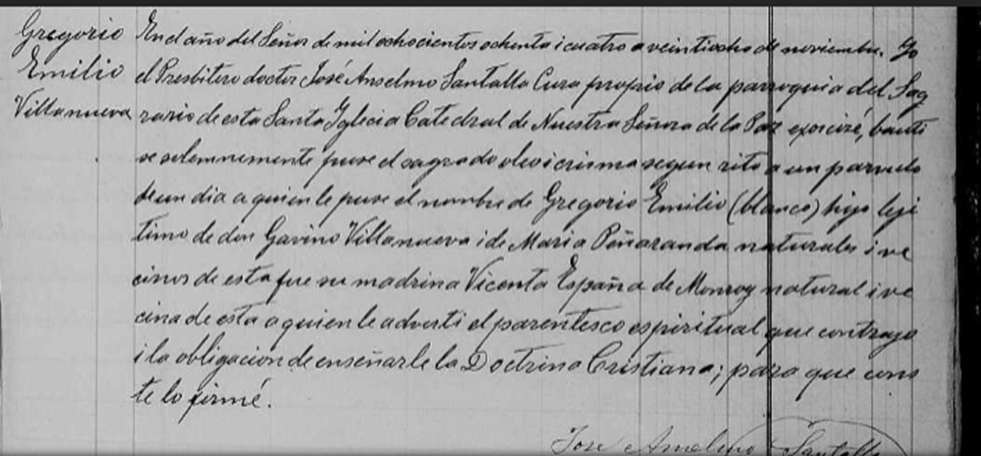 Gregorio
Emilio
Villanueva
En el año del Señor de mil ochocientos ochenta i cuatro a veintiocho de noviembre. Yo
el Presbitero doctor José Anselmo Santalla Cura propio de la parroquia del Sag
rario de esta Santa Yglecia Catedral de Nuestra Señora de la Paz exorcizé, bauti
se solemnemente puse el sagrado oleo i crisma segun rito a un parvulo
de un dia a quien le puse el nombre de Gregorio Emilio (blanco) hijo leji
timo de don Gavino Villanueva i de Maria Peñaranda naturales i ve
cinos de esta fue su madrina Vicenta España de Monroy natural i ve
cina de esta a quien le adverti el parentesco espiritual que contrajo
i la obligacion de enseñarle la Doctrina Cristiana; para que cons
te lo firmé.
Jose Anselmo Santalla